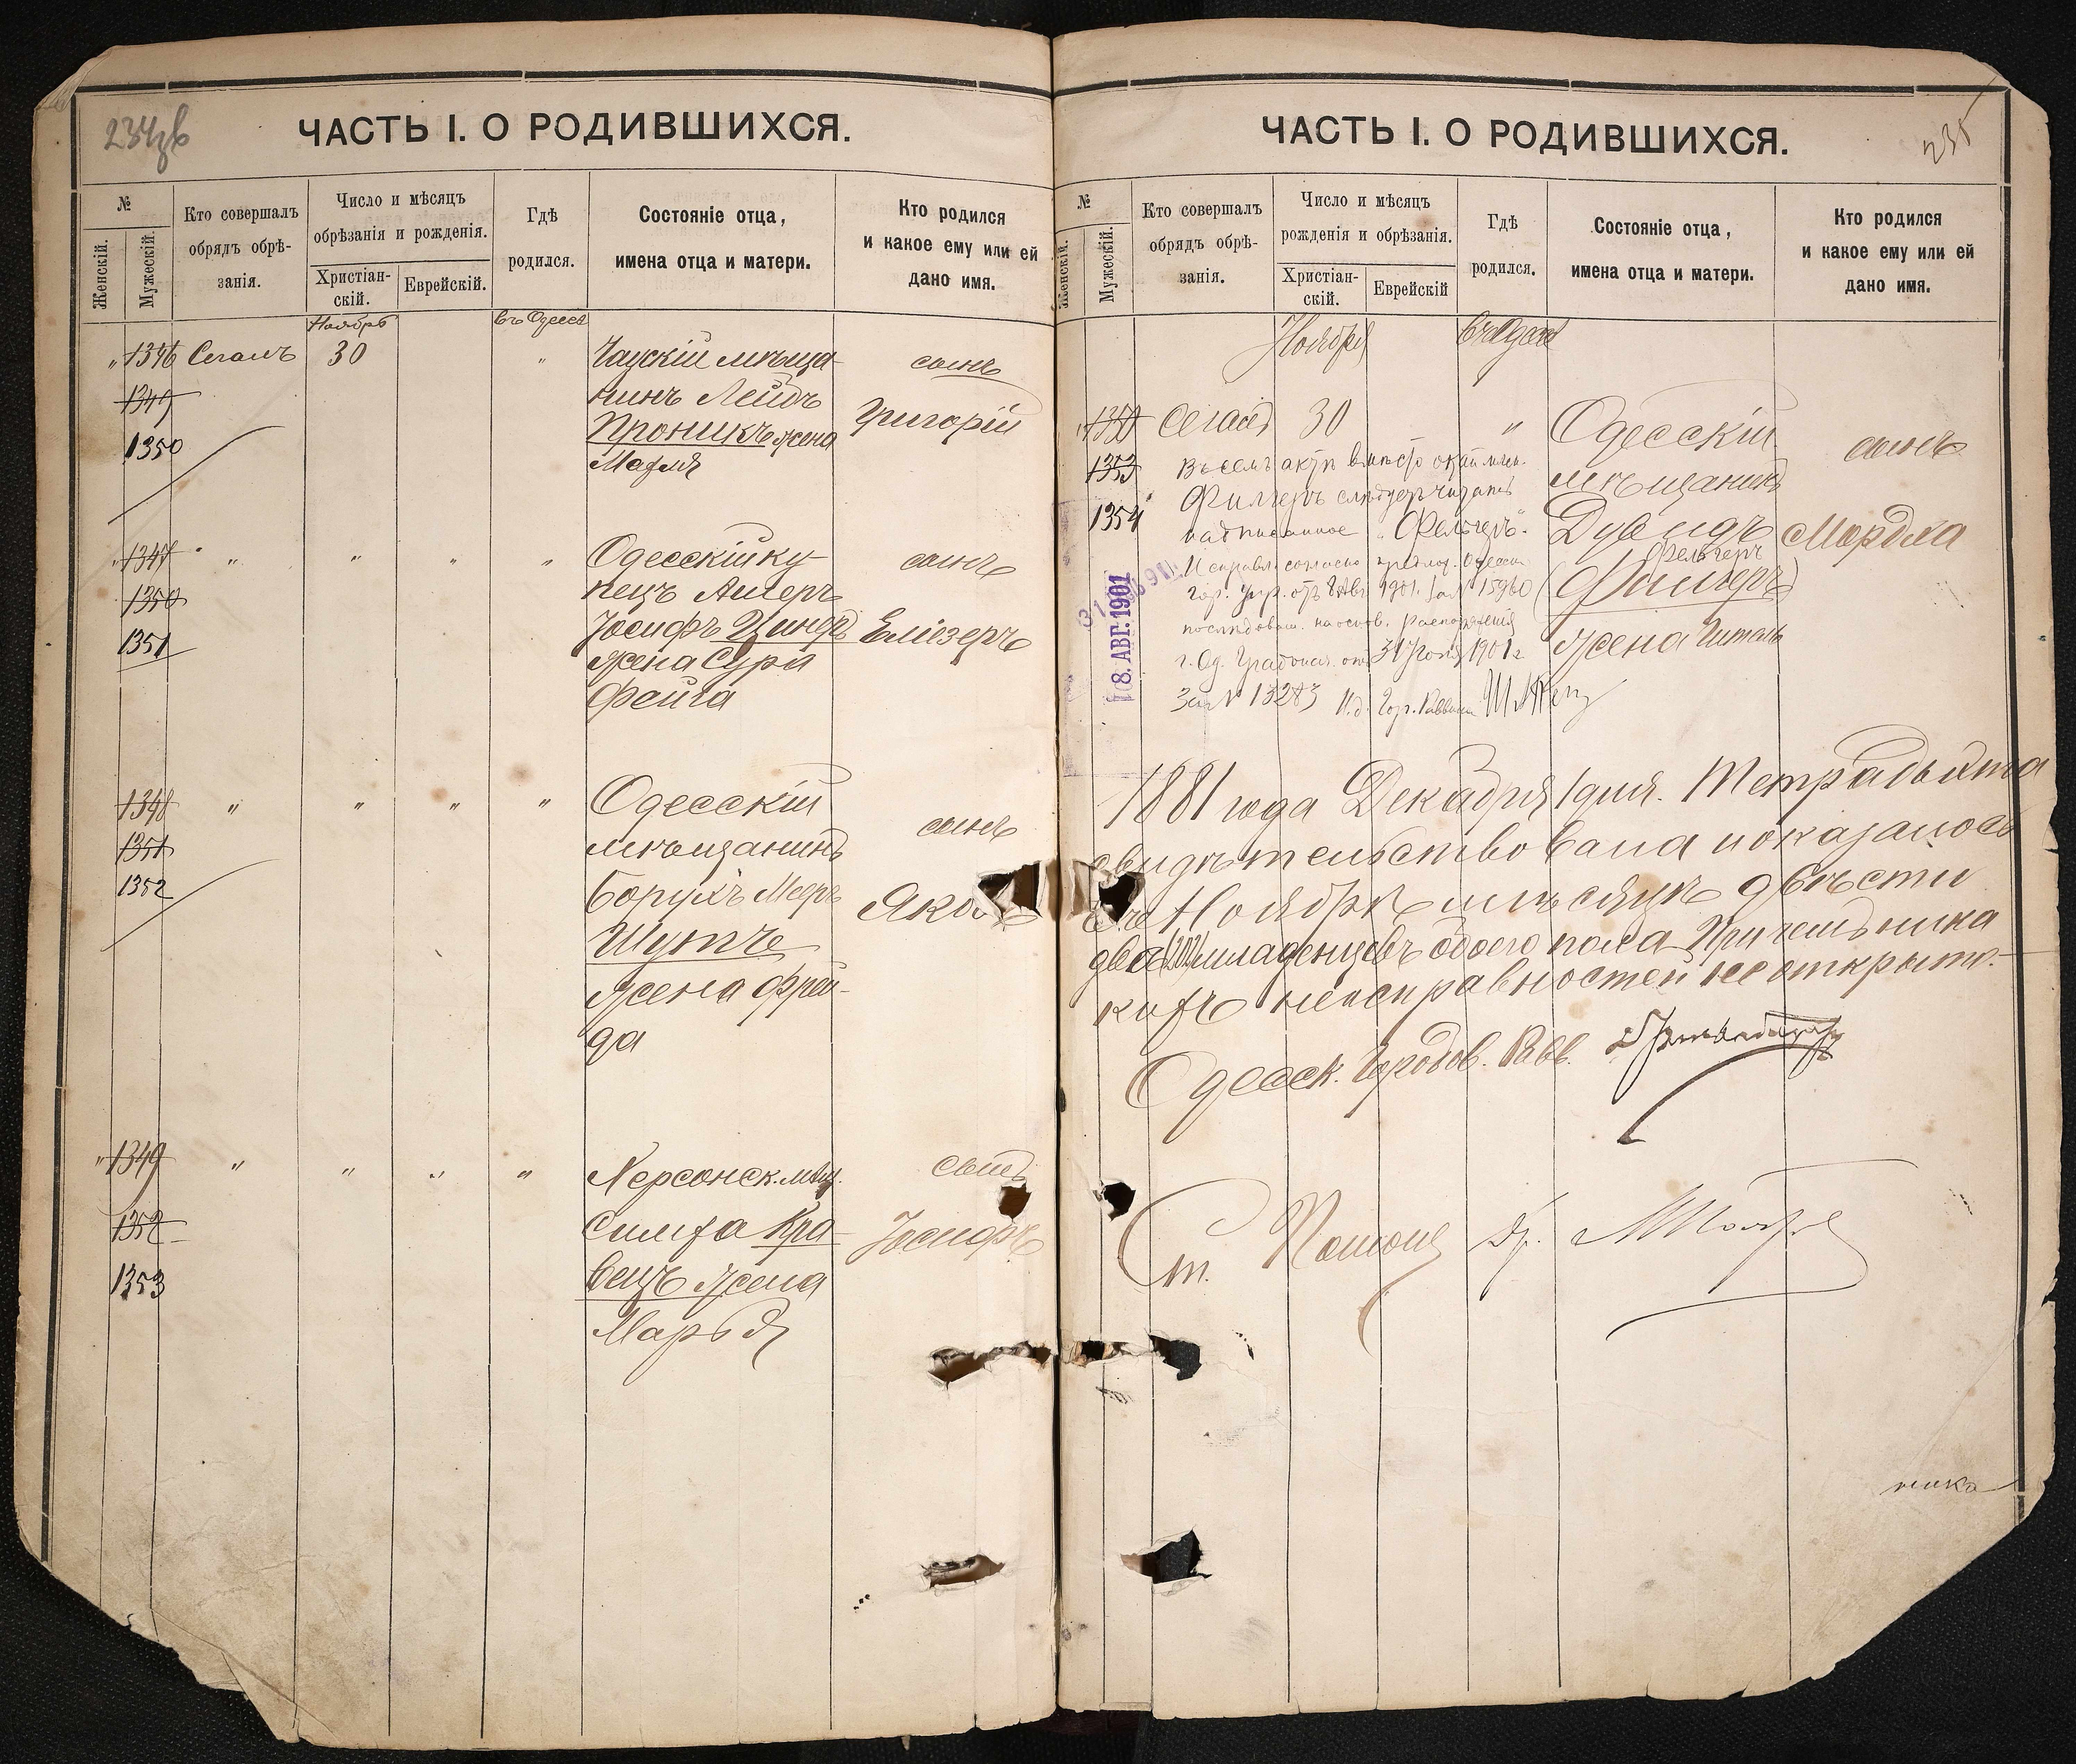 234
ЧАСТЬ I. О РОДИВШИХСЯ.
№
Женскій.
Мужескій.
Кто совершалъ
обрядъ обрѣ-
занія.
Число и мѣсяцъ
обрѣзанія и рожденія.
Христіан-
скій.
Еврейскій.
Гдѣ
родился.
Состояніе отца,
имена отца и матери.
Кто родился
и какое ему или ей
дано имя.
Ноябрь
въ Одессѣ
" 1346 Сегалъ 30 " Чаускій мѣща-
нинъ Лейбъ
Проникъ жена
Марія
сынъ
Григорій
1349
1350
1347 " " " " Одесскій ку-
пецъ Ашеръ
Іосифъ Циндъ
жена Сура
Фейга
сынъ
Еліезеръ
1350
1351
1348 " " " " Одесскій
мѣщанинъ
Борухъ Меръ
Шутъ
жена Фрей-
да
сынъ
1351
1352
" 1349 " " " " Херсонск. мѣщ.
Симха Кра-
вецъ жена
Марья
сынъ
Іосифъ
1352
1353
235
ЧАСТЬ I. О РОДИВШИХСЯ.
№
Женскій.
Мужескій.
Кто совершалъ
обрядъ обрѣ-
занія.
Число и мѣсяцъ
рожденія и обрѣзанія.
Христіан-
скій.
Еврейскій
Гдѣ
родился.
Состояніе отца,
имена отца и матери.
Кто родился
и какое ему или ей
дано имя.
Ноября
въ Одессѣ
1350 Сегалъ 30 " Одесскій
мѣщанинъ
Дувидъ
Фельгеръ
(Фильгеръ)
жена Гитель
сынъ
Мордка
1353
1354
Въ семъ актѣ вмѣсто
Фильгеръ слѣдуетъ читать
надписанное "Фельгеръ".
Исправл. согласно предлож. Одесск.
Гор. Упр. отъ 8 Авг. 1901 г. за № 15960
послѣдовавш. на основ. распоряженія
г. Од. Градонач. отъ 31 Іюля 1901 г.
за № 13283 И. д. Гор. Раввина
8. АВГ. 1901
1881 года Декабря 1 дня. Тетрадь эта
свидѣтельствована и оказалось
въ Ноябрѣ мѣсяцѣ двѣсти
два (202) младенцевъ обоего пола. При чемъ ника
кихъ неисправностей не открыто.
Одесск. Городов. Равв.
Ст.
ника